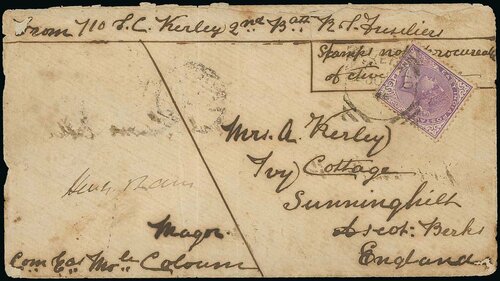 From 710 S.C. Kerley 2nd Batt R.S. Fusiliers
Stamps not procurable
of active
Mrs. A. Kerley
Ivy Cottage
Sunninghill
Ascot: Berks
England
Major
Comg Moble Column